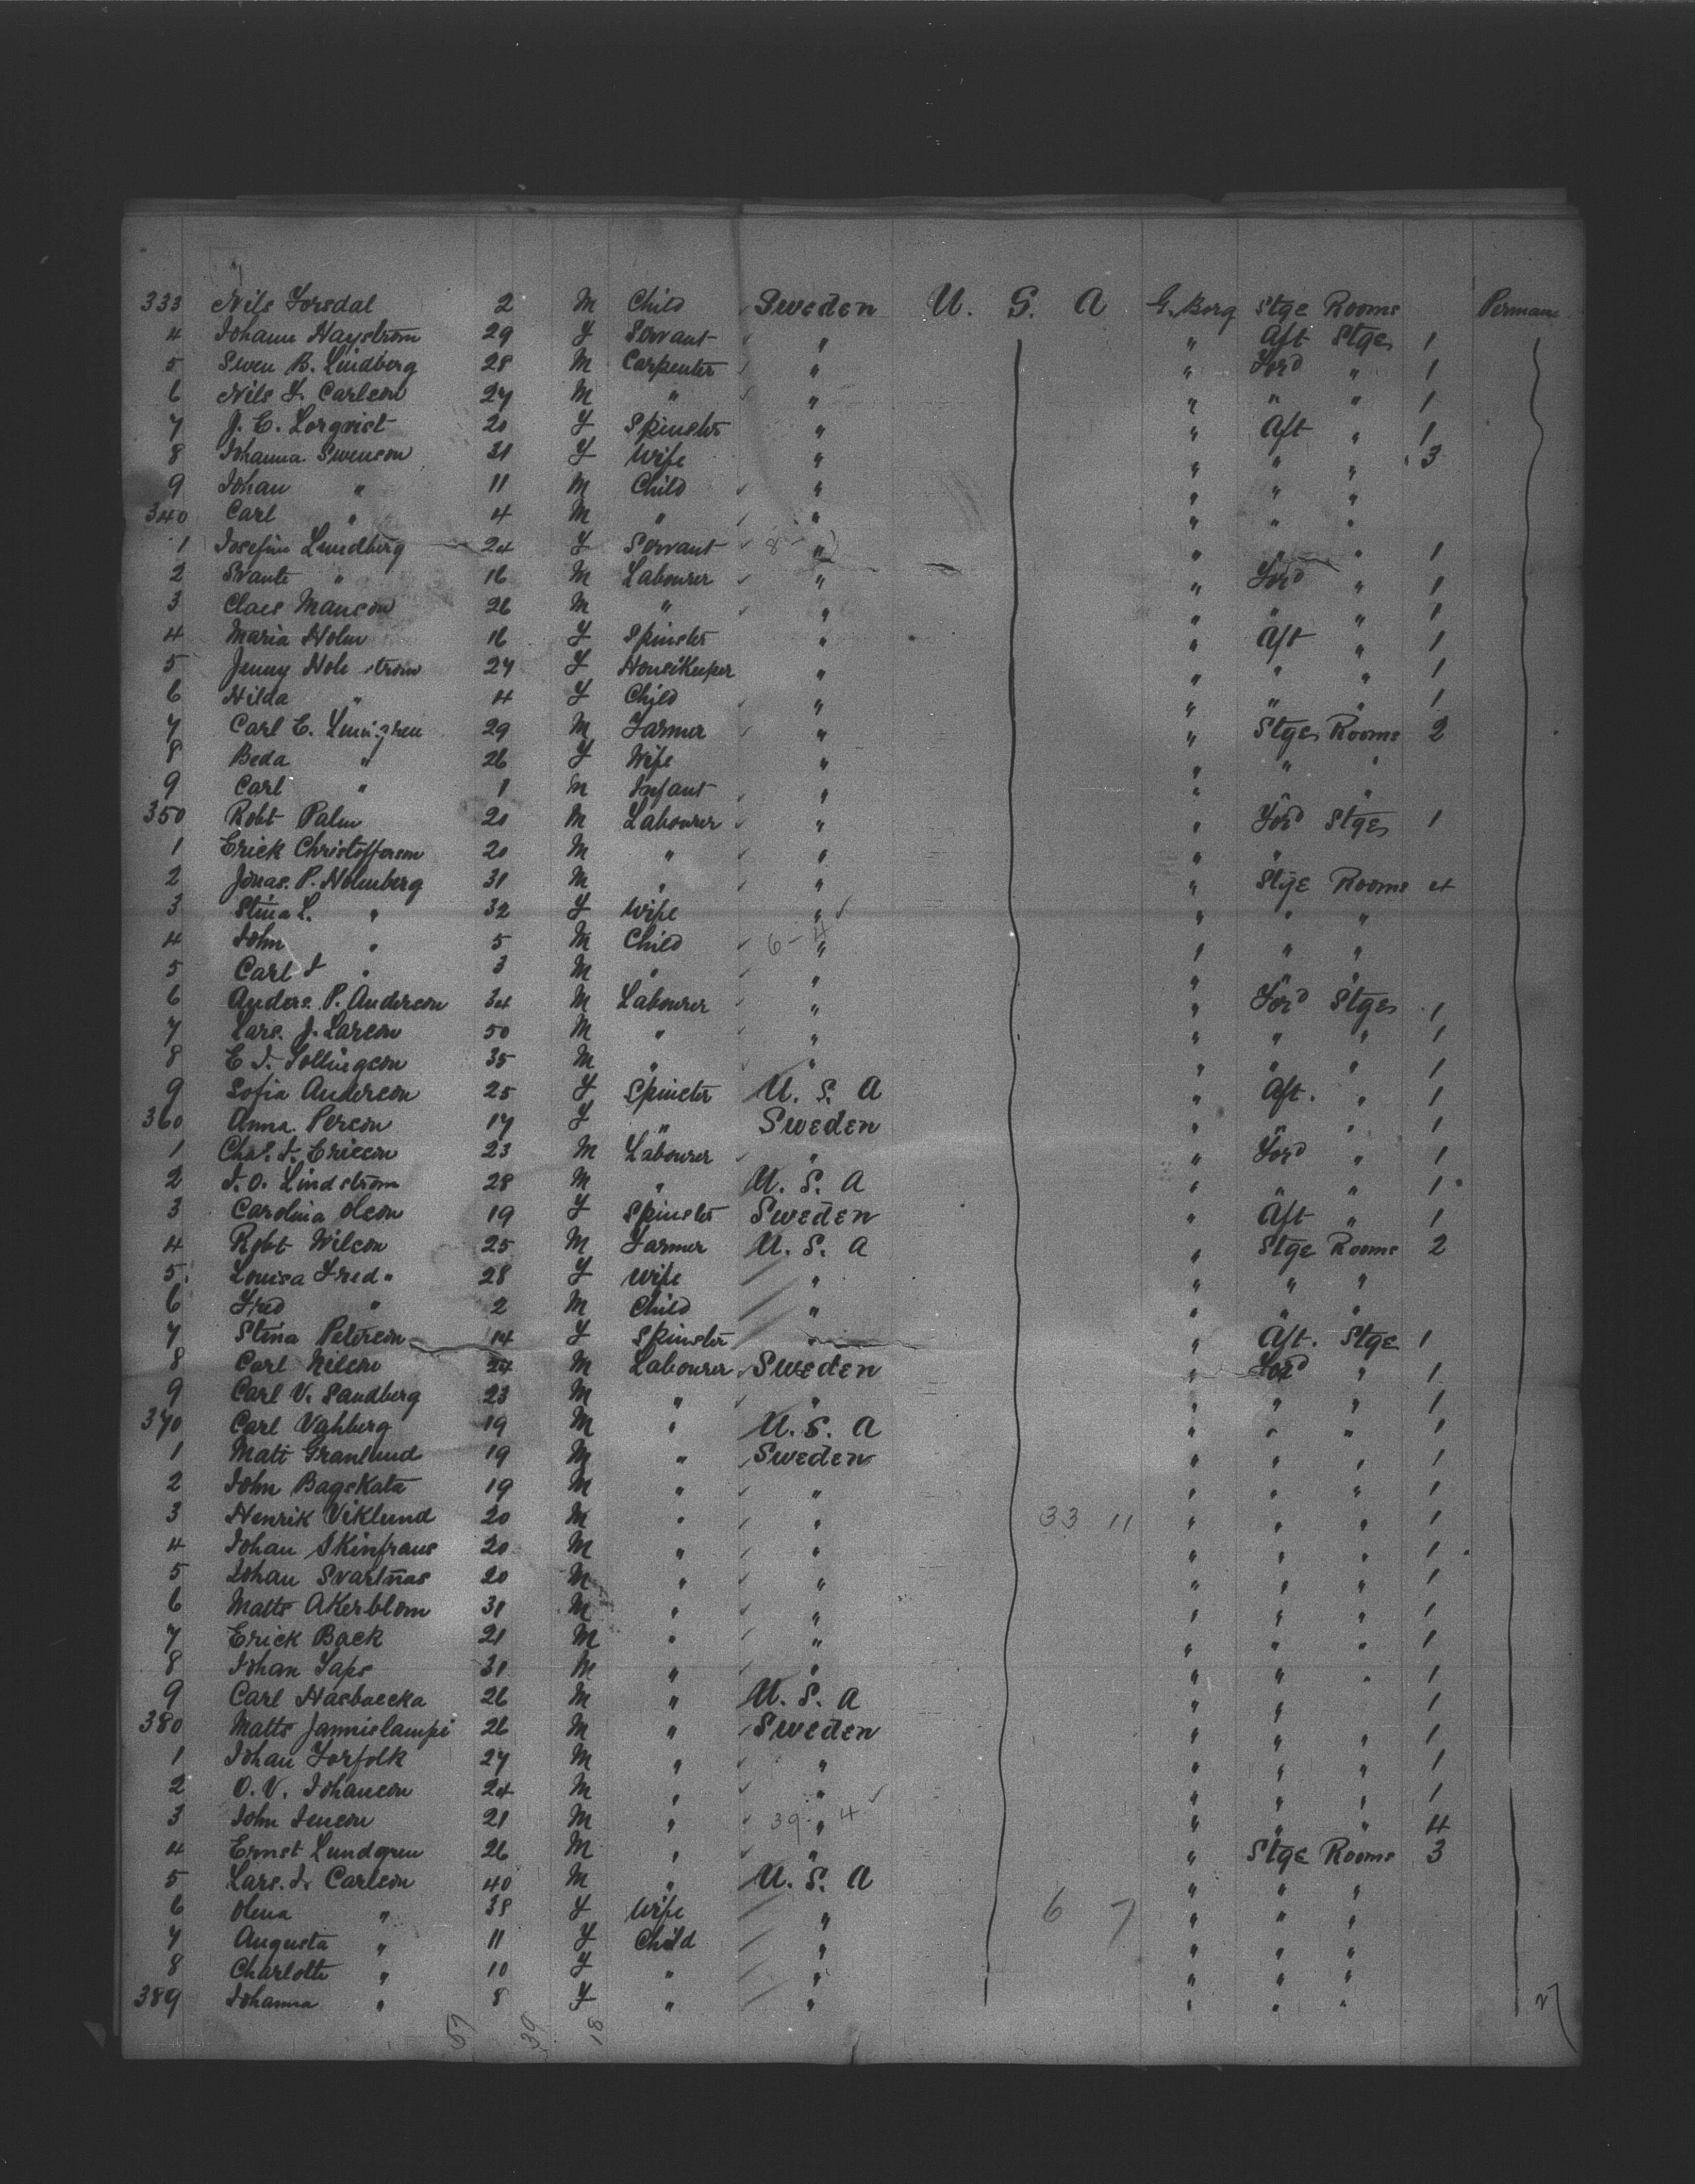 333 Nils Forsdal 2 M Child Sweden U. S. A G. Borg Stge Rooms Perman
4 Johann Hagstrom 29 F Servant " " Aft Stge 1
5 Swen B. Lindberg 28 M Carpenter " " Ford " 1
6 Nils F. Carlson 27 M " " " " " 1
7 J. E. Lorqvist 20 F Spinster " " Aft " 1
8 Johanna Swenson 31 F Wife " " " " 3
9 Johan " 11 M Child " " " "
340 Carl " 4 M " " " " "
1 Josefin Lundberg 24 F Servant 8 " " " " 1
2 Svante " 16 M Labourer " " Ford " 1
3 Claes Manson 26 M " " " " " 1
4 Maria Holm 16 F Spinster " " Aft " 1
5 Jenny Holmstrom 27 F HouseKeeper " " " " 1
6 Hilda " 4 F Child " " " " 1
7 Carl E. 29 M Farmer " " Stge Rooms 2
8 Beda " 26 F Wife " " " "
9 Carl " 1 M Infant " " " "
350 Robt Palm 20 M Labourer " " Ford Stge 1
1 Erick Christofferson 20 M " " " "
2 Jonas. P. Holmberg 31 M " " " Stge Rooms 4
3 Stina L. " 32 F Wife " " " "
4 John " 5 M Child 6-4 " " " "
5 Carl J " 3 M " " " " "
6 Anders. P. Anderson 34 M Labourer " " Ford Stge 1
7 Lars. J. Larson 50 M " " " " " 1
8 E J. 35 M " " " " " 1
9 Sofia Anderson 25 F Spinster U. S. A " Aft. " 1
360 Anna Person 17 F " Sweden " " " 1
1 Chas. J. Ericson 23 M Labourer " " Ford " 1
2 J. O. Lindstrom 28 M " U. S. A " " " 1
3 Carolina Olson 19 F Spinster Sweden " Aft " 1
4 Robt Wilson 25 M Farmer U. S. A " Stge Rooms 2
5 Louisa Fred " 28 F Wife " " " "
6 Fred " 2 M Child " " " "
7 Stina Peterson 14 F Spinster " " Aft. Stge 1
8 Carl Nilson 24 M Labourer Sweden " Ford " 1
9 Carl V. Sandberg 23 M " " " " " 1
370 Carl Vahberg 19 M " U. S. A " " " 1
1 Matt Granlund 19 M " Sweden " " " 1
2 John Bagskata 19 M " " " " " 1
3 Henrik Viklund 20 M " " 33 11 " " " 1
4 Johan Skinfrans 20 M " " " " " 1
5 Johan Svartnas 20 M " " " " " 1
6 Matts Akerblom 31 M " " " " " 1
7 Erick Back 21 M " " " " " 1
8 Johan 31 M " " " " " 1
9 Carl Hasbaecka 26 M " U. S. A " " 1
380 Matts Jannislampi 26 M " Sweden " " " 1
1 Johan Forfolk 27 M " " " " " 1
2 O. V. Johanson 24 M " " " " " 1
3 John Jenson 21 M " 39 " 4 " " " 4
4 Ernst Lundgren 26 M " " " Stge Rooms 3
5 Lars. J. Carlson 40 M " U. S. A " " "
6 Olena " 38 F Wife " 6 7 " " "
7 Augusta " 11 F Child " " " "
8 Charlotte " 10 F " " " " "
389 Johanna " 8 F " " " " "
57 39 18